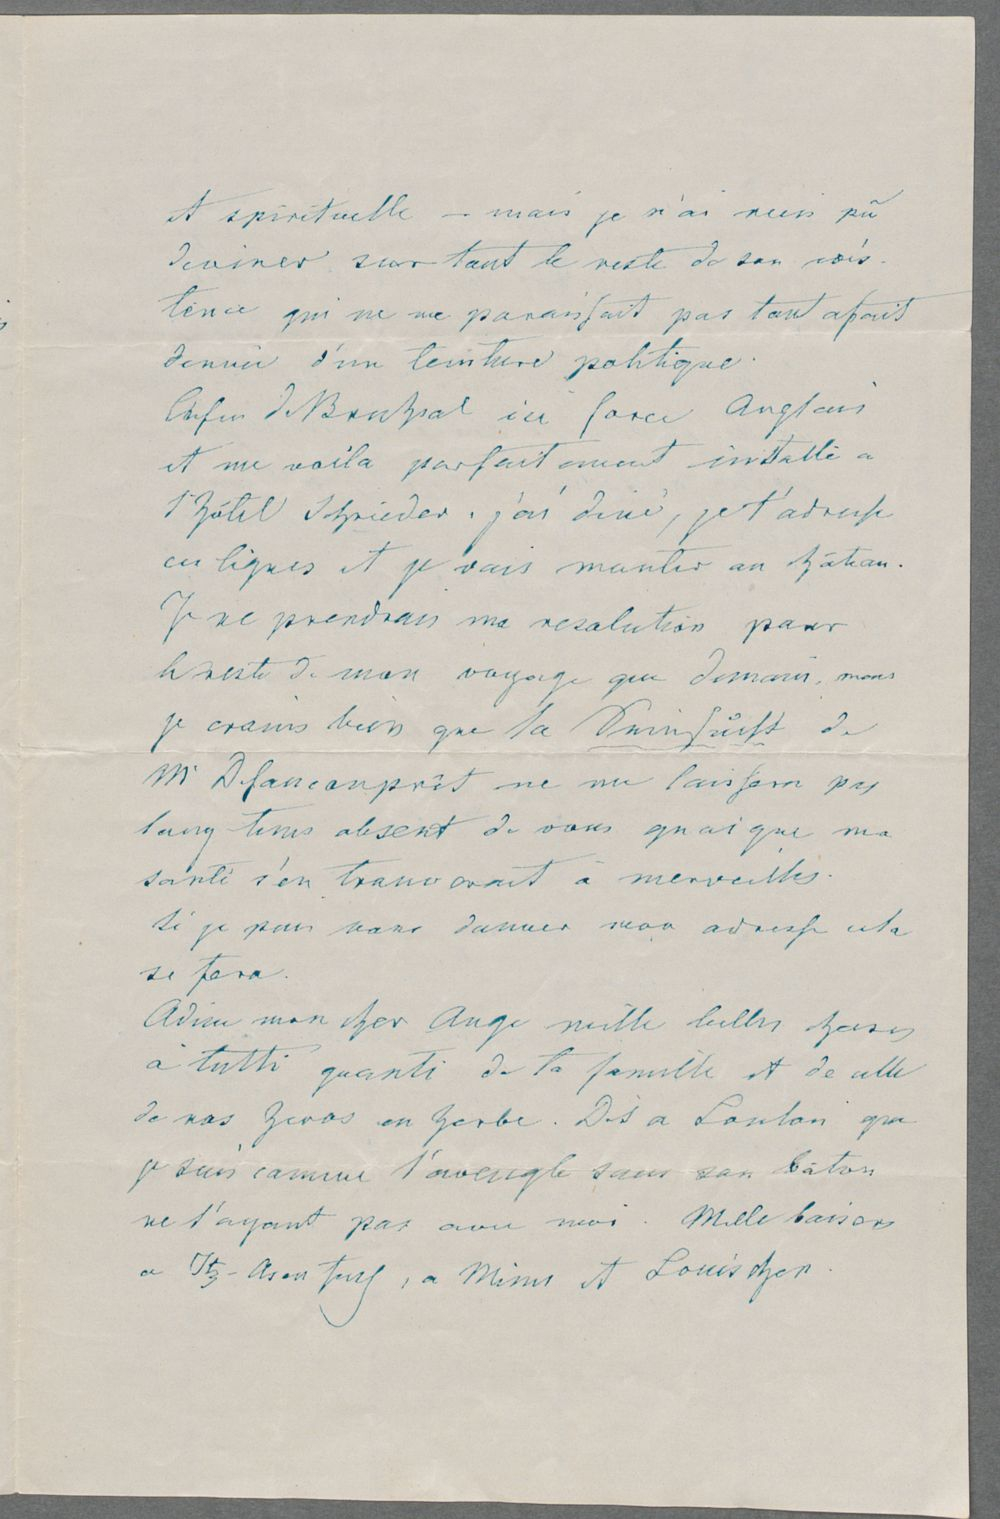 et spirituelle – mais je n'ai rien pû
deviner sur tout le reste de son exis-
tence qui ne me paraissait pas tout afait
denuée d'une teinture politique.
Enfin de Bruchsal ici force Anglais
et me voila parfaitement installé a
l'hôtel Schrieder. j'ai diné, je t'adresse
ces lignes et je vais monter au château.
Je ne prendrais ma resolution pour
le reste de mon voyage que demain, mais
je crains bien que la de
Mr Defauconprêt ne me laissera pas
long tems absent de vous quoique ma
santé s'en trouverait à merveilles.
Si je puis vous donner mon adresse cela
se fera.
Adieu mon cher Ange mille belles choses
à tutti quanti de la famille et de celle
de nos heros en herbe. Dis a Loulou que
je suis comme l'aveugle sans son bâton
ne l'ayant pas avec moi. Mille baisers
a , a Mimi et Louischen.